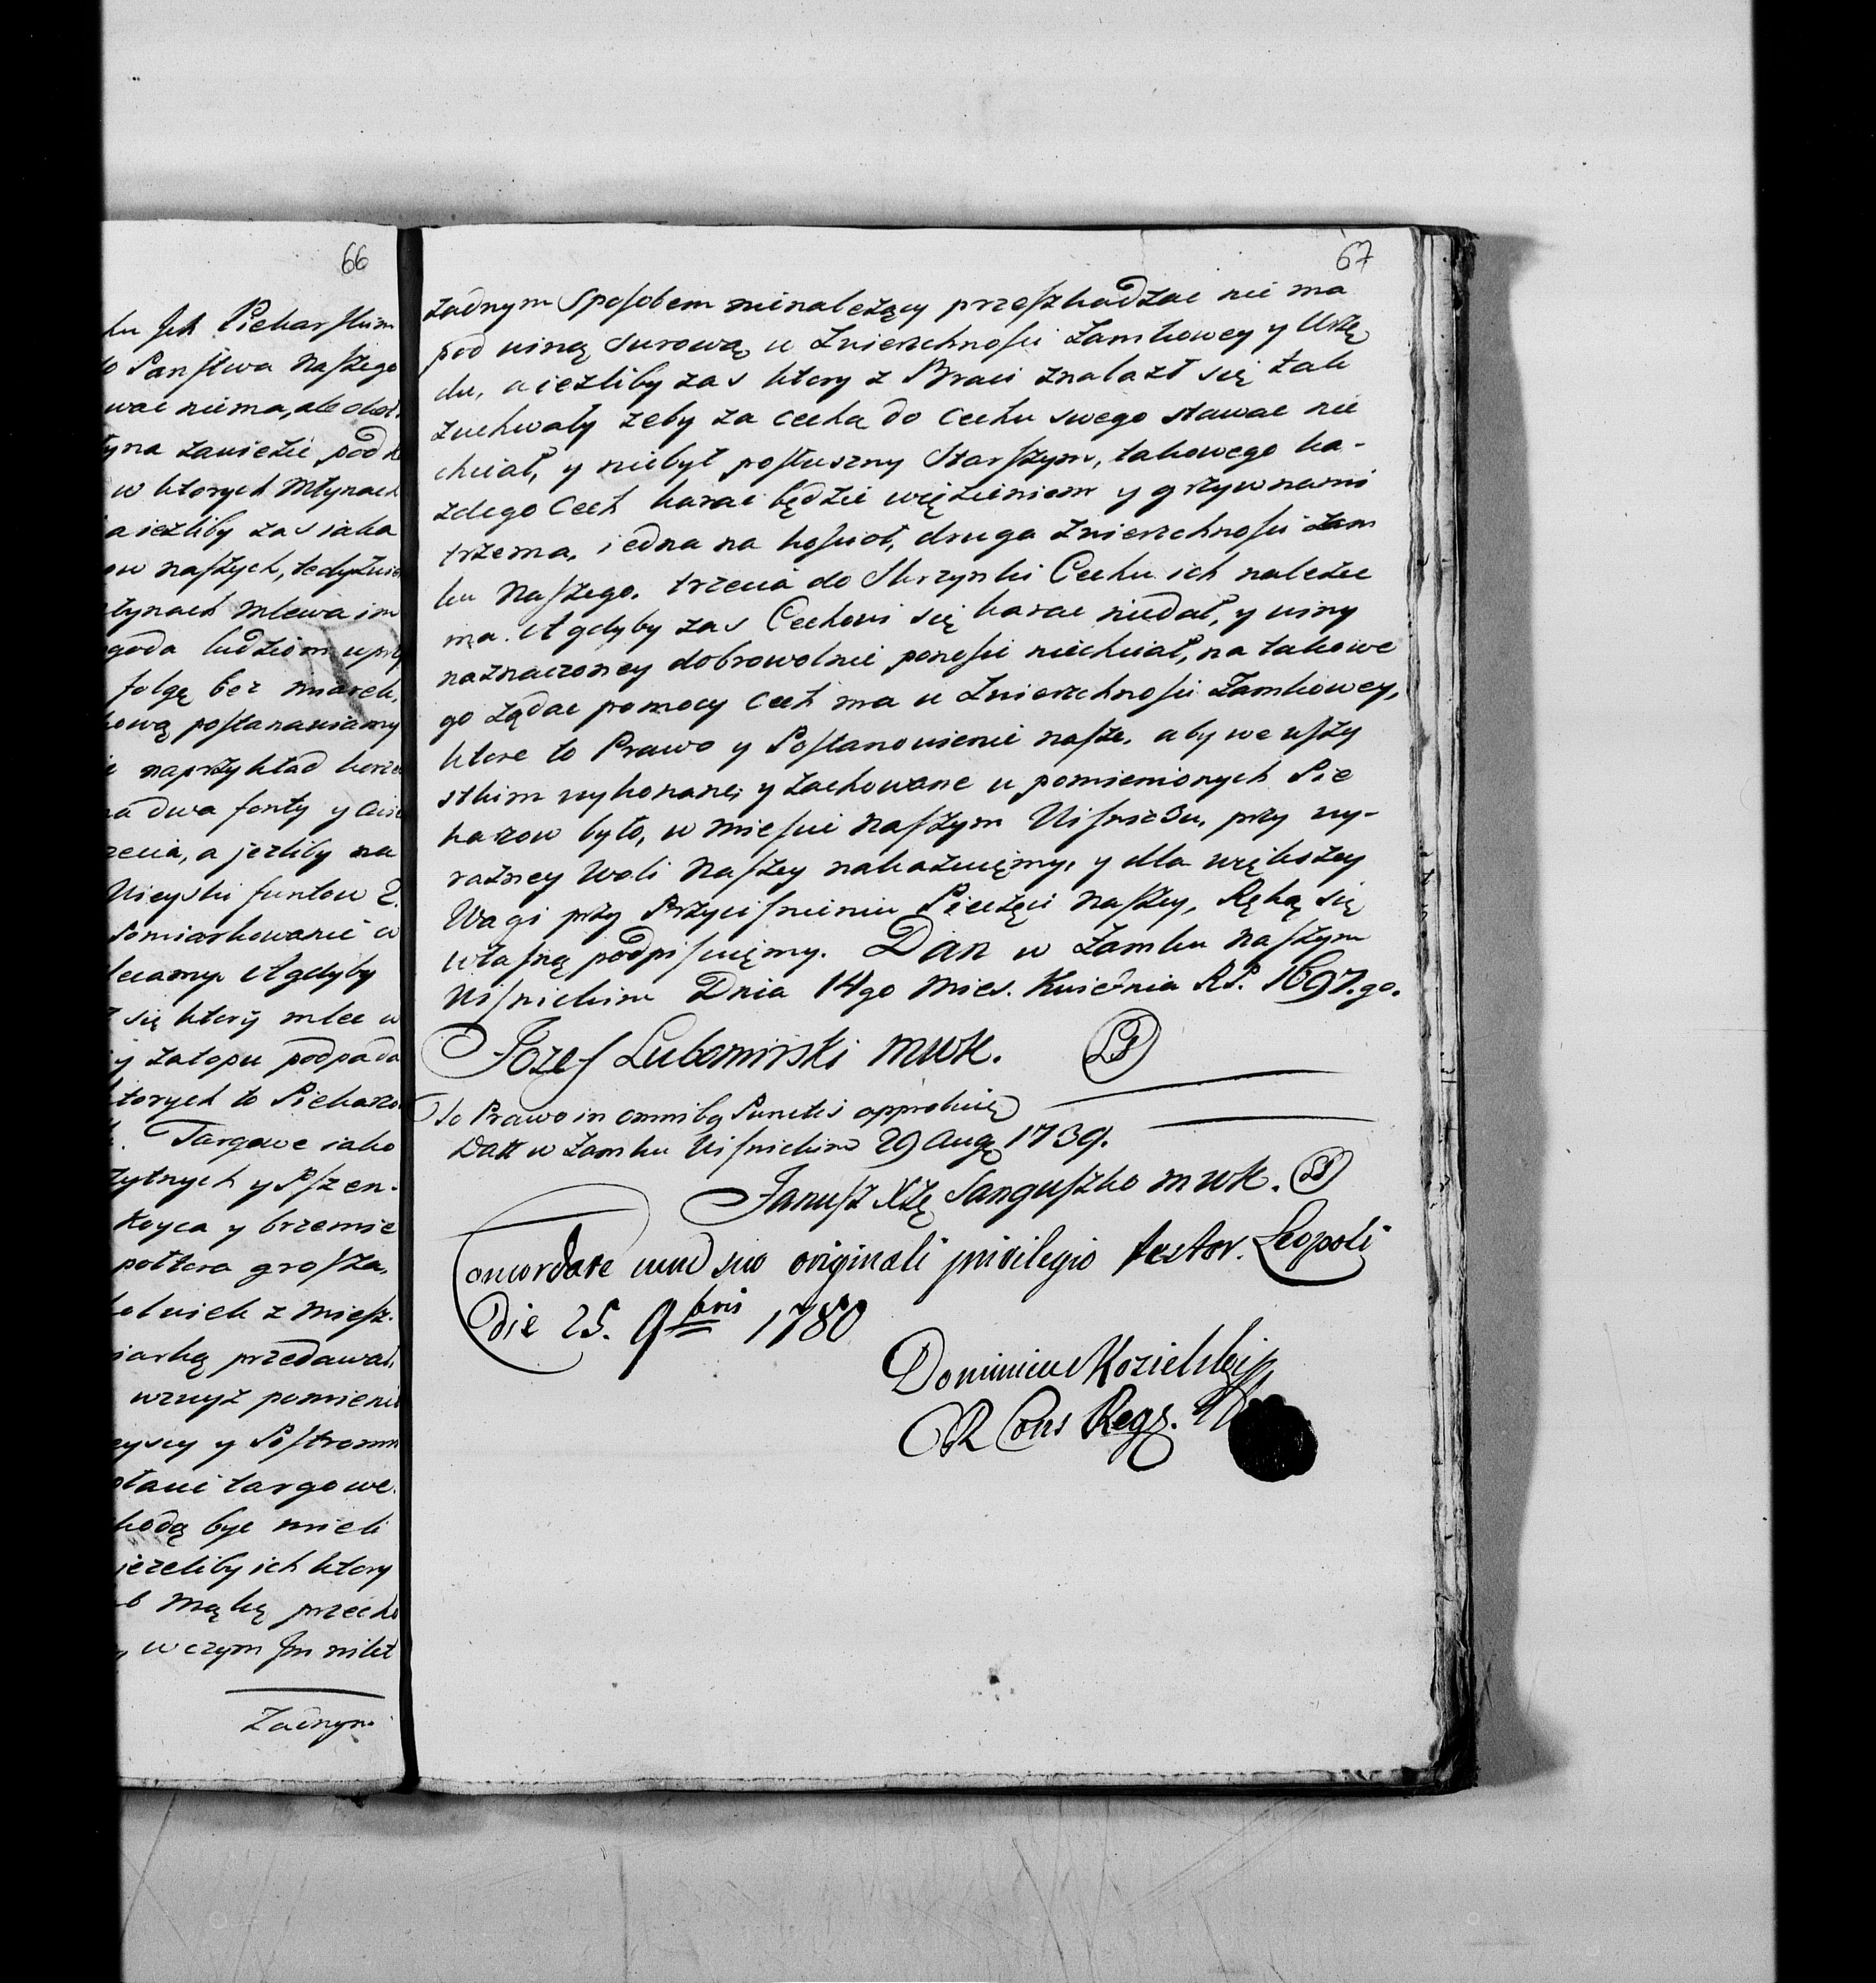 66
ku Ich Piekarskim
Panstwa Naszego
wac niema, ale
zawiezie pod
w ktorych Młynach
a iezliby zas iaka
ow naszych,
Mlewa im
ludziom
folgę bez miarek,
postanawiamy
naprzykład
dwa fonty y
a jezliby na
funtow 2.
Pomiarkowanie w
Agdyby
się ktory mlec w
y zatopu podpada
ktorych to
Targowe iako
y Pszen-
y brzemie
połtora grosza,
z Miesz-
przedawał,
wzwyż pomieni
y Postronn
targowe.
być mieli
iezeliby ich ktory
Mąkę
w czym Im nikt
Zadnym
67
Zadnym Sposobem ninależący przeszkadzac nie ma
pod winą surową u Zwierzchnosci Zamkowey y Urzę
du, a iezliby zas ktory z Braci znalazł się tak
zuchwały zeby za cecha do Cechu swego stawac nie
chciał, y niebył posłuszny Starszym, takowego ka-
zdego Cech karac będzie więzieniem y grzywnami
trzema, iedna na kościoł, druga Zwierzchnosci Zam
ku Naszego. trzecia do Skrzynki Cechu ich nalezec
ma. A gdyby zas Cechowi się karac niedał, y winy
naznaczoney dobrowolnie ponosic niechciał, na takowe
go żądac pomocy Cech ma u Zwierzchnosci Zamkowey,
ktore to Prawo y Postanowienie nasze, aby we wszy
stkim wykonane, y zachowane u pomienionych Pie
karzow było, w miescie Naszym Wisniczu, przy wy-
razney Woli Naszey nakazuięmy, y dla większey
Wagi przy Przycisnieniu Pieczęci Naszey, Ręką się
własną podpisuięmy. Dan w Zamku Naszym
Wisnickim Dnia 14go Mies. Kwietnia RP. 1697.go.
Jozef Lubomirski mwk. LS
To Prawo in omnibq Punctis approbuię
Datt w Zamku Wisnickim 29 Augq 1739.
Janusz Xżę Sanguszko mwk. LS
Concordare cum suo originali privilegio testor. Leopoli
Die 25. 9bris 1780
Dominicus Kozielski
Cons Regs.